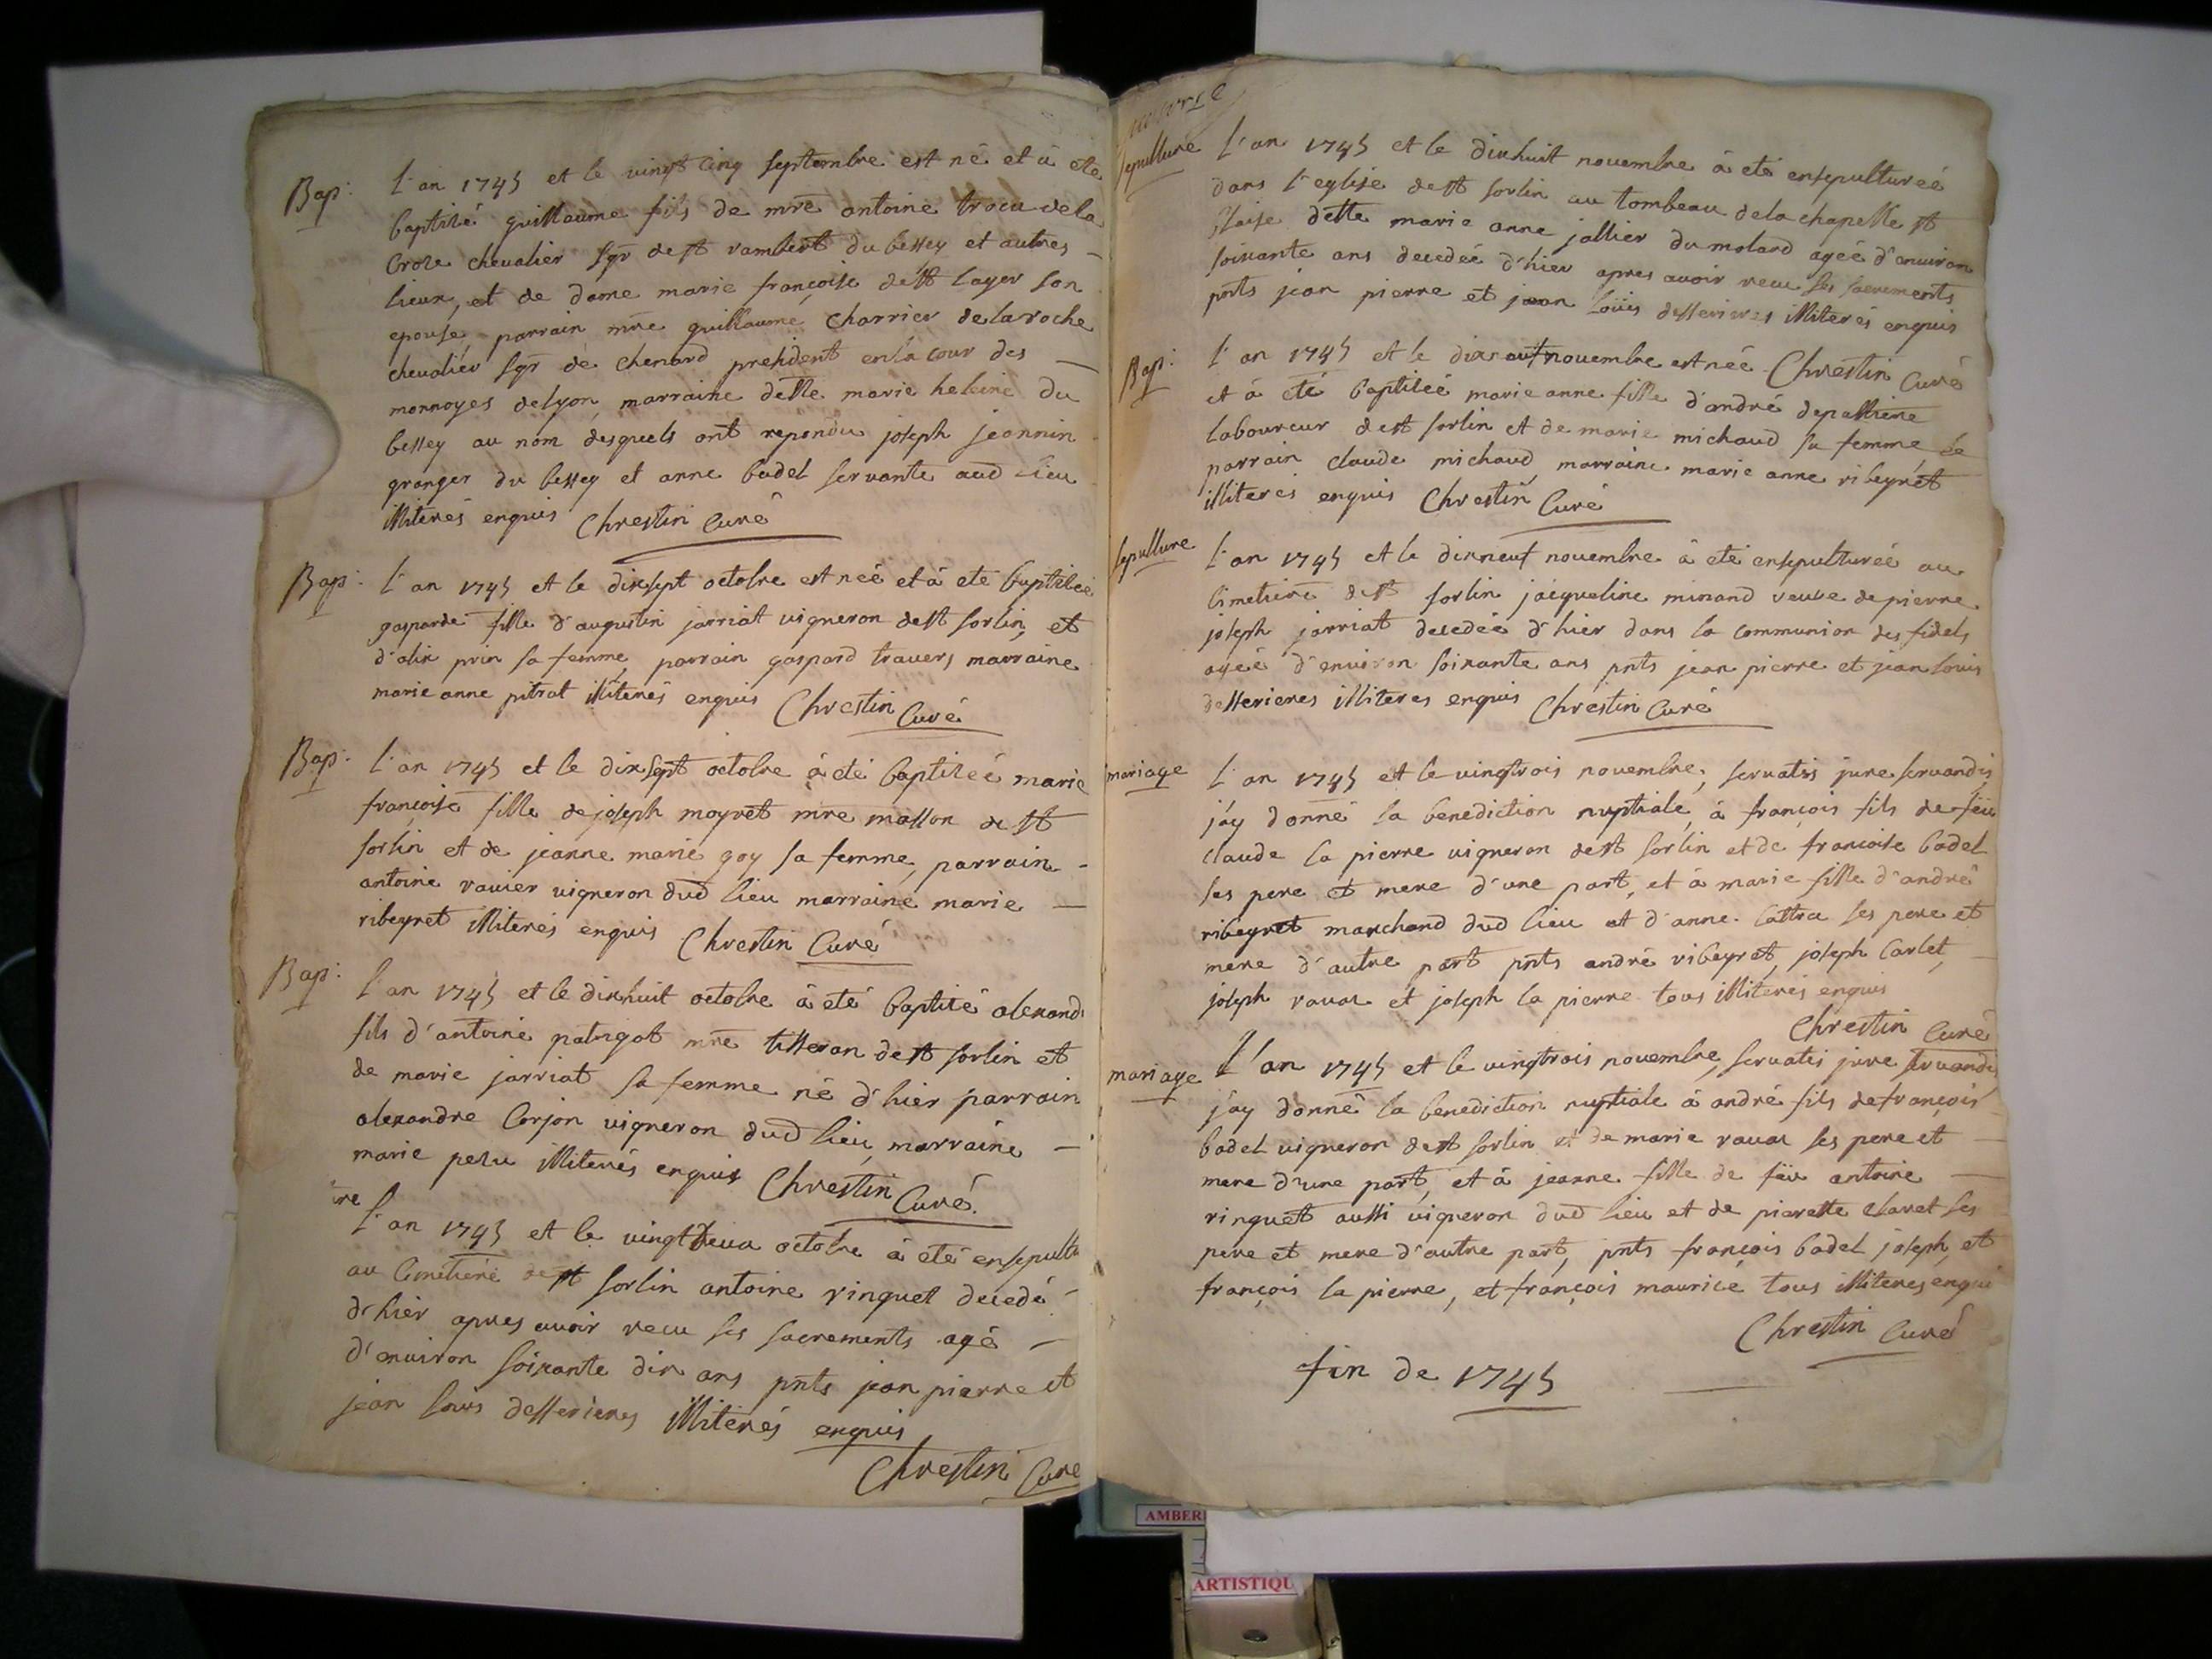 Bap: L'an 1745 et le vingt cinq septembre est né et à eté
baptisé guillaume fils de mre antoine trocu de la
croze chevalier sgr de st rambert du bessey et autres
lieux, et de dame marie françoise de st lager son
epouse, parrain mre guillaume charrier de la roche
chevaliér sgr de chenard president en la cour des
monnoyes de lyon, marraine delle marie heleine du
bessey au nom desquels ont repondu joseph jeannin
granger du bessey et anne badel servante aud lieu
illiterés enquis Chrestin Curé
Bap: L'an 1745 et le dixsept octobre est neé et à eté baptiseé
gasparde fille d'augustin jarriat vigneron de st sorlin, et
d'alix prin sa femme, parrain gaspard travers marraine
marie anne pitrat illiterés enquis Chrestin Curé
Bap: L'an 1745 et le dixsept octobre à eté baptiseé marie
françoise fille de joseph moyret mre masson de st
sorlin et de jeanne marie goy sa femme, parrain
antoine ravier vigneron dud lieu marraine marie
ribeyret illiterés enquis Chrestin Curé
Bap: L'an 1745 et le dixhuit octobre à eté baptisé alexand
fils d'antoine patrigot mre tisseran de st sorlin et
de marie jarriat sa femme né d'hier parrain
alexandre Corjon vigneron dud lieu, marraine
marie pelu illiterés enquis Chrestin Curé.
ure L'an 1745 et le vingtdeux octobre à eté ensepultu
au Cimetiere de st sorlin antoine rinquet decedé
d'hier apres avoir recu ses sacrements agé
d'environ soixante dix ans pnts jean pierre et
jean louis desserieres illiterés enquis
Chrestin Curé
sepulture L'an 1745 et le dixhuit novembre à eté ensepultureé
dans l'eglise de st sorlin au tombeau de la chapelle st
blaise delle marie anne jallier du molard ageé d'environ
soixante ans decedeé d'hier apres avoir recu ses sacrements
pnts jean pierre et jean loüis desserieres illiterés enquis
Chrestin Curé
Bap: L'an 1745 et le dixneuf novembre est neé
et à eté baptiseé marie anne fille d'andré depassiere
laboureur de st sorlin et de marie michaud sa femme le
parrain claude michaud marraine marie anne ribeyret
illiterés enquis Chrestin Curé
sepulture L'an 1745 et le dixneuf novembre à eté ensepultureé au
Cimetiere de st sorlin jacqueline minand veuve de pierre
joseph jarriat decedeé d'hier dans la communion des fidels
ageé d'environ soixante ans pnts jean pierre et jean louis
desserieres illiteres enquis Chrestin Curé
mariage L'an 1745 et le vingtrois novembre, servatis jure servandis
j'ay donné la benediction nuptiale, à françois fils de feu
claude la pierre vigneron de st sorlin et de francoise badel
ses pere et mere d'une part, et à marie fille d'andré
ribeyret marchand dud lieu et d'anne ses pere et
mere d'autre part pnts andré ribeyret, joseph Carlet,
joseph ravar et joseph la pierre tous illiterés enquis
Chrestin Curé
mariage L'an 1745 et le vingtrois novembre, servatis jure servandis
j'ay donné la benediction nuptiale à andré fils de françois
badel vigneron de st sorlin et de marie ravar ses pere et
mere d'une part, et à jeanne fille de feu antoine
rinquet aussi vigneron dud lieu et de pierette claret ses
pere et mere d'autre part, pnts françois badel joseph, et
françois la pierre, et françois maurice tous illiteres enqui
Chrestin Curé
fin de 1745
AMBER
ARTISTIQU